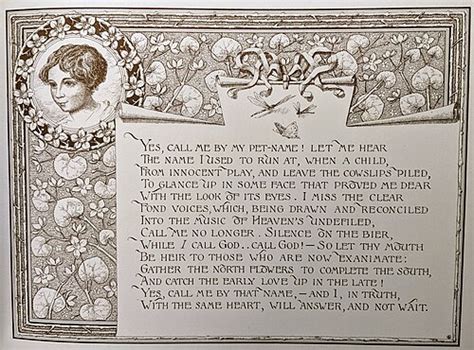 YES, CALL ME BY MY PET-NAME! LET ME HEAR
THE NAME I USED TO RUN AT, WHEN A CHILD,
FROM INNOCENT PLAY, AND LEAVE THE COWSLIPS PILED,
TO GLANCE UP IN SOME FACE THAT PROVED ME DEAR
WITH THE LOOK OF ITS EYES. I MISS THE CLEAR
FOND VOICES, WHICH, BEING DRAWN AND RECONCILED
INTO THE MUSIC OF HEAVEN'S UNDEFILED,
CALL ME NO LONGER. SILENCE ON THE BIER,
WHILE I CALL GOD..CALL GOD!—SO LET THY MOUTH
BE HEIR TO THOSE WHO ARE NOW EXANIMATE:
GATHER THE NORTH FLOWERS TO COMPLETE THE SOUTH,
AND CATCH THE EARLY LOVE UP IN THE LATE!
YES, CALL ME BY THAT NAME,—AND I, IN TRUTH,
WITH THE SAME HEART, WILL ANSWER, AND NOT WAIT.